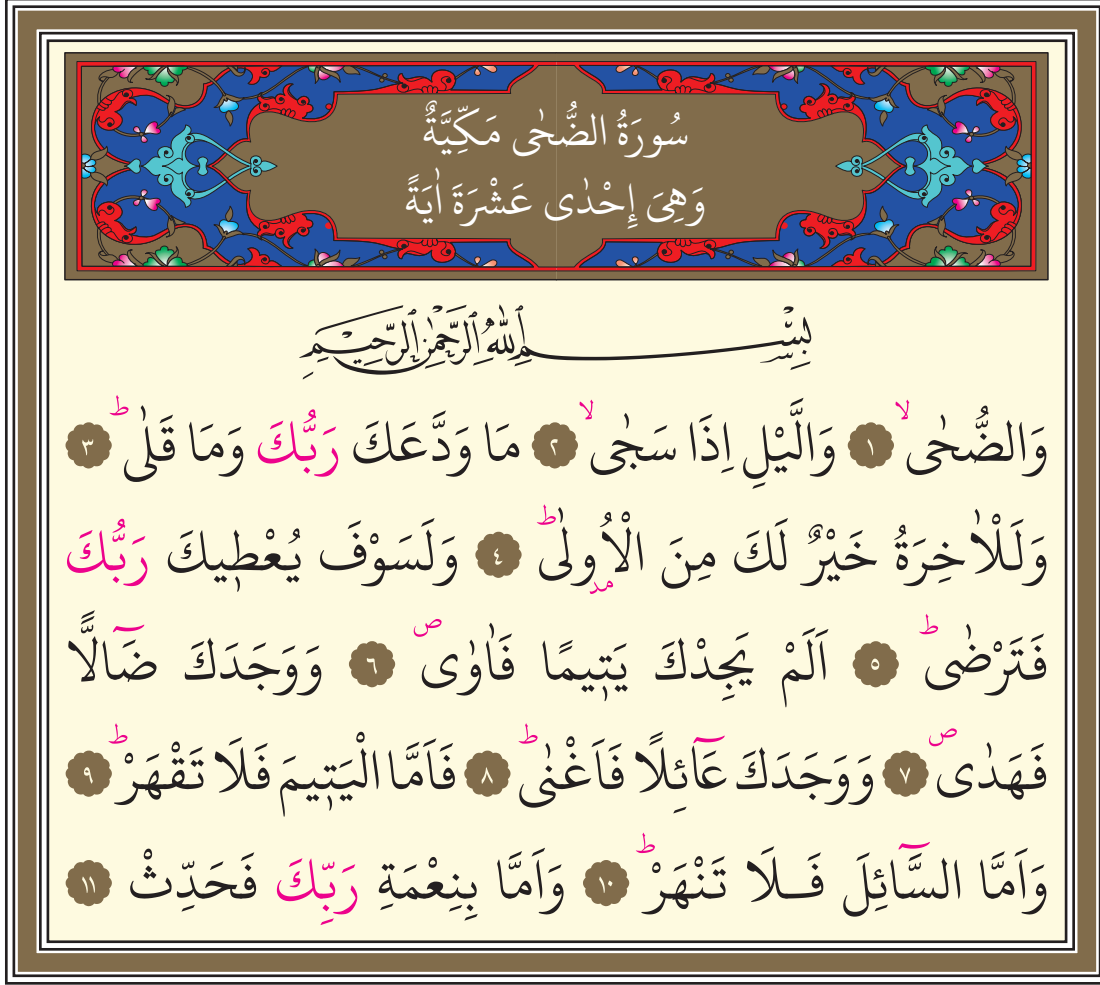 سُورَةُ الضُّحٰى مَكِّيَّةٌ
وَهِىَ إِحْدٰى عَشْرَةَ اٰيَةً
بِسْمِ اللّٰهِ الرَّحْمٰنِ الرَّحِيمِ
وَالضُّحٰىۙ ﴿١﴾ وَالَّيْلِ اِذَا سَجٰىۙ ﴿٢﴾ مَا وَدَّعَكَ رَبُّكَ وَمَا قَلٰىؕ ﴿٣﴾
وَلَلْاٰخِرَةُ خَيْرٌ لَكَ مِنَ الْاُو۫لٰىؕ ﴿٤﴾ وَلَسَوْفَ يُعْطٖيكَ رَبُّكَ
فَتَرْضٰىؕ ﴿٥﴾ اَلَمْ يَجِدْكَ يَتٖيمًا فَاٰوٰىࣕ ﴿٦﴾ وَوَجَدَكَ ضَٓالًّا
فَهَدٰىࣕ ﴿٧﴾ وَوَجَدَكَ عَٓائِلًا فَاَغْنٰىؕ ﴿٨﴾ فَاَمَّا الْيَتٖيمَ فَلَا تَقْهَرْؕ ﴿٩﴾
وَاَمَّا السَّٓائِلَ فَلَا تَنْهَرْؕ ﴿١٠﴾ وَاَمَّا بِنِعْمَةِ رَبِّكَ فَحَدِّثْ ﴿١١﴾